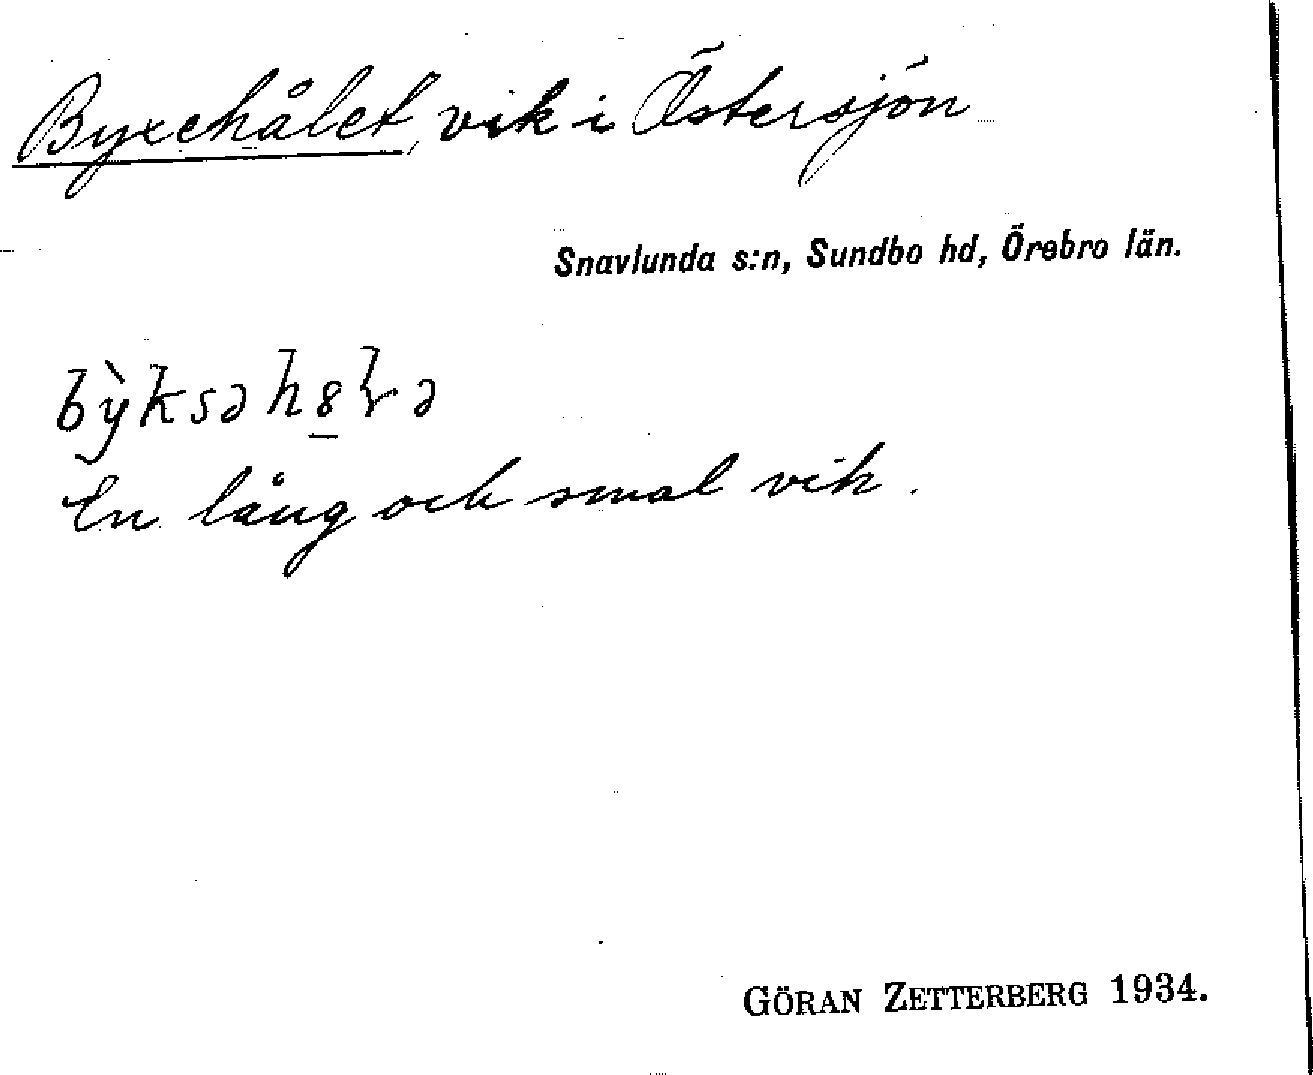 Byxehålet, vik i Östersjön
Snavlunda s:n, Sundbo hd, Örebro län.
En lång och smal vik.
GÖRAN ZETTERBERG 1934.